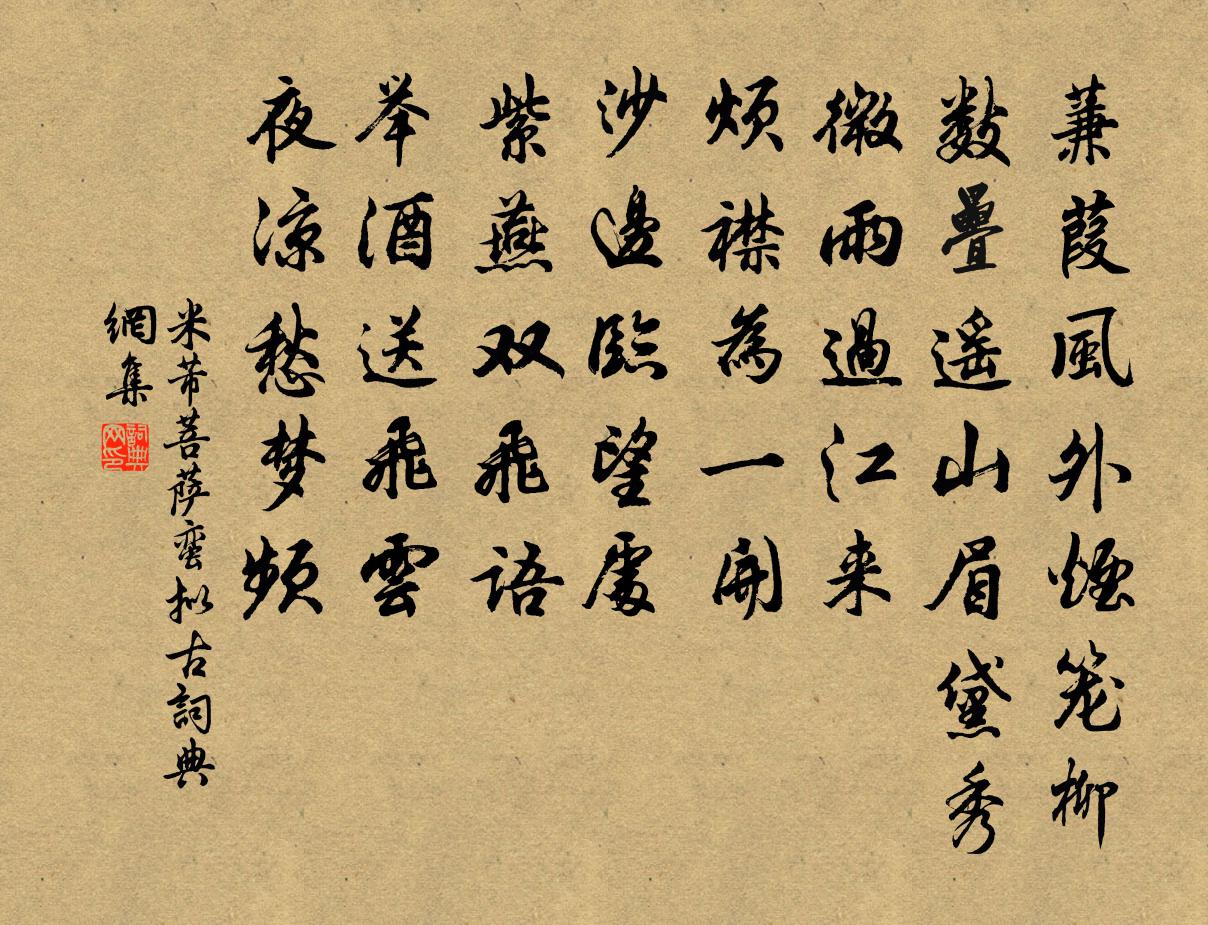 蒹葭風外煙笼柳
數疊遥山眉黛秀
微雨過江来
烦襟為一開
沙邊臨望處
紫燕双飛語
举酒送飛雲
夜凉愁梦频
米芾菩萨蛮拟古詞典
網集
詞典網印